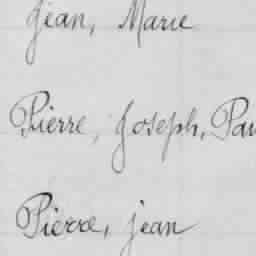 Jean, Marie
Pierre, Joseph, Pau
Pierre, jean